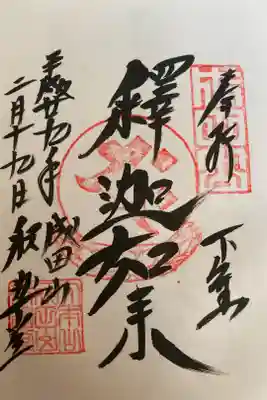 奉拝 下総
釋迦如来
平成廿九年 成田山
二月十九日 釈迦堂